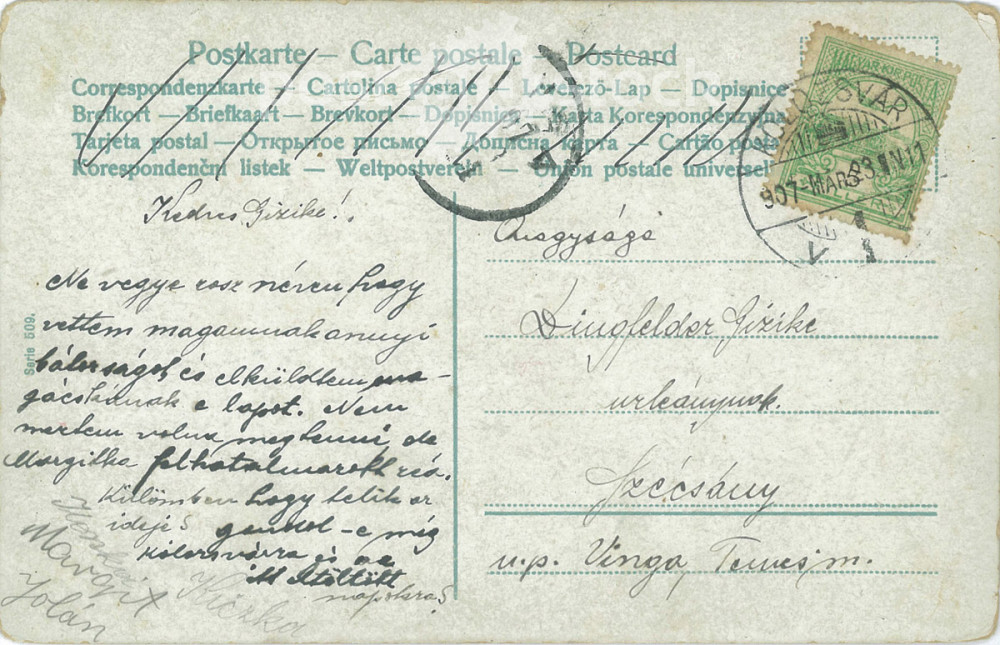 Postkarte – Carte postale – Postcard
Correspondenzkarte – Cartolina postale – Levelező-Lap – Dopisnice
Brefkort – Briefkaart – Brevkort – Dopisnica – Karta Korespondenzyjna
Tarjeta postal – Открытое письмо – Дописна карта – Cartão postal
Korespondenční listek – Weltpostverein – Union postale universelle
MAGYAR KIR. POSTA
KOLOZSVÁR
907 MÁRS 23 N 11
V
Serie 509.
Kedves Gizike!
Ne vegye rosz néven hogy
vettem magamnak annyi
bátorságot és elküldtem ma-
gácskának e lapot. Nem
mertem volna megtenni de
Margitka felhatalmazott reá.
Külömben hogy telik az
ideje? gondol-e még
kolozsvárra és az
itt töltött
napokra?
Margit
Jolán
Kiczka
Nagysága
Dingfelder Gizike
urleánynak.
Szécsány
u.p. Vinga Temes m.